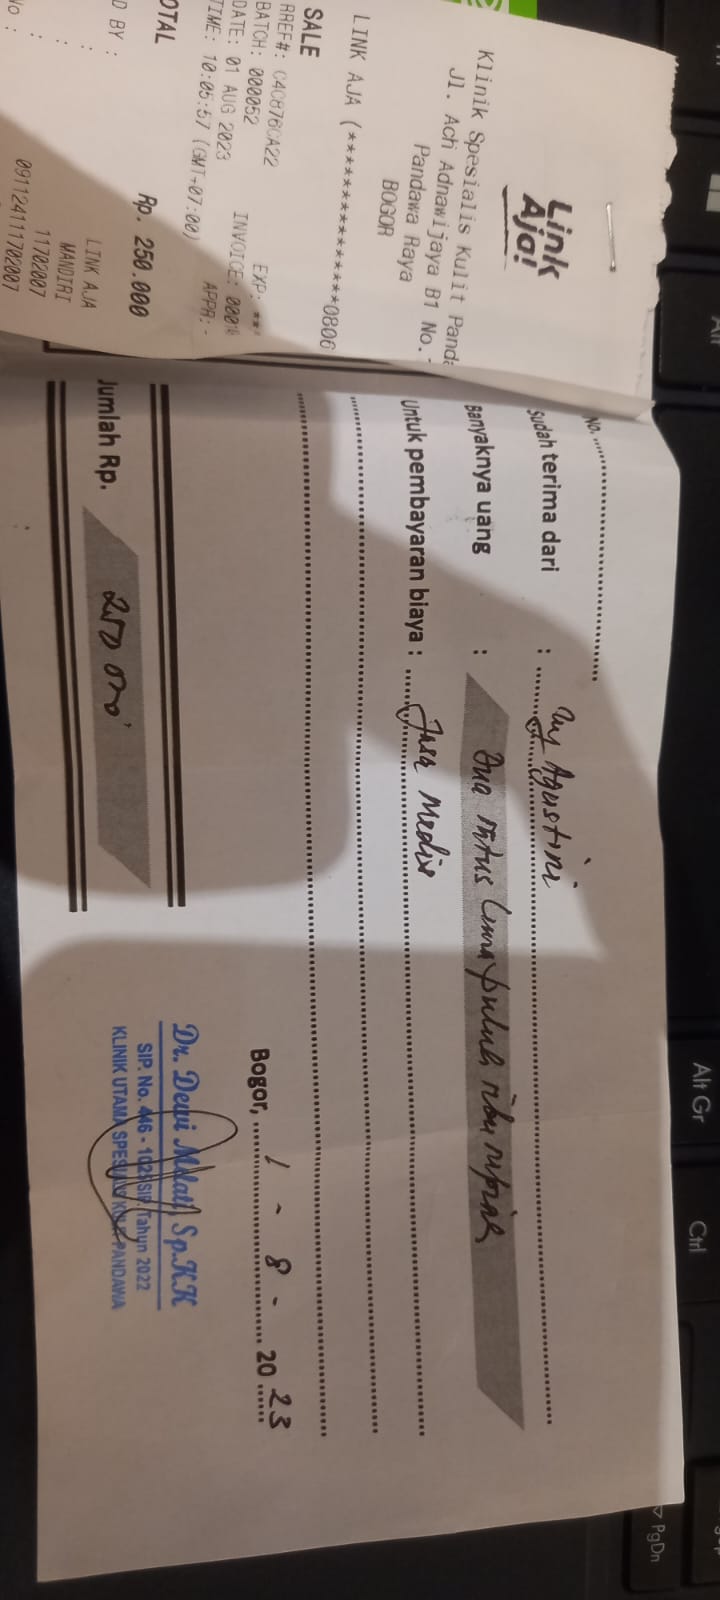 Link
Aja!
Klinik Spesialis Kulit Panda
Jl. Ach Adnawijaya B1 No.
Pandawa Raya
BOGOR
LINK AJA (****************0806
SALE
RREF#: C4C876CA22
BATCH: 000052 EXP: **
DATE: 01 AUG 2023 INVOICE:
TIME: 10:05:57 (GMT+07:00) APPR:-
OTAL Rp. 250.000
D BY : LINK AJA
: MANDIRI
: 11702007
No : 091124111702007
No.
Sudah terima dari : Ny Agustini
Banyaknya uang : Dua ratus lima puluh ribu rupiah
Untuk pembayaran biaya : Jasa Medis
Jumlah Rp. 250 000
Bogor, 1 - 8 - 2023
Dr. Dewi Sp.KK
SIP. No. 446 - Tahun 2022
KLINIK UTAMA SPESIALIS KULIT PANDAWA
Alt Gr
Ctrl
PgDn